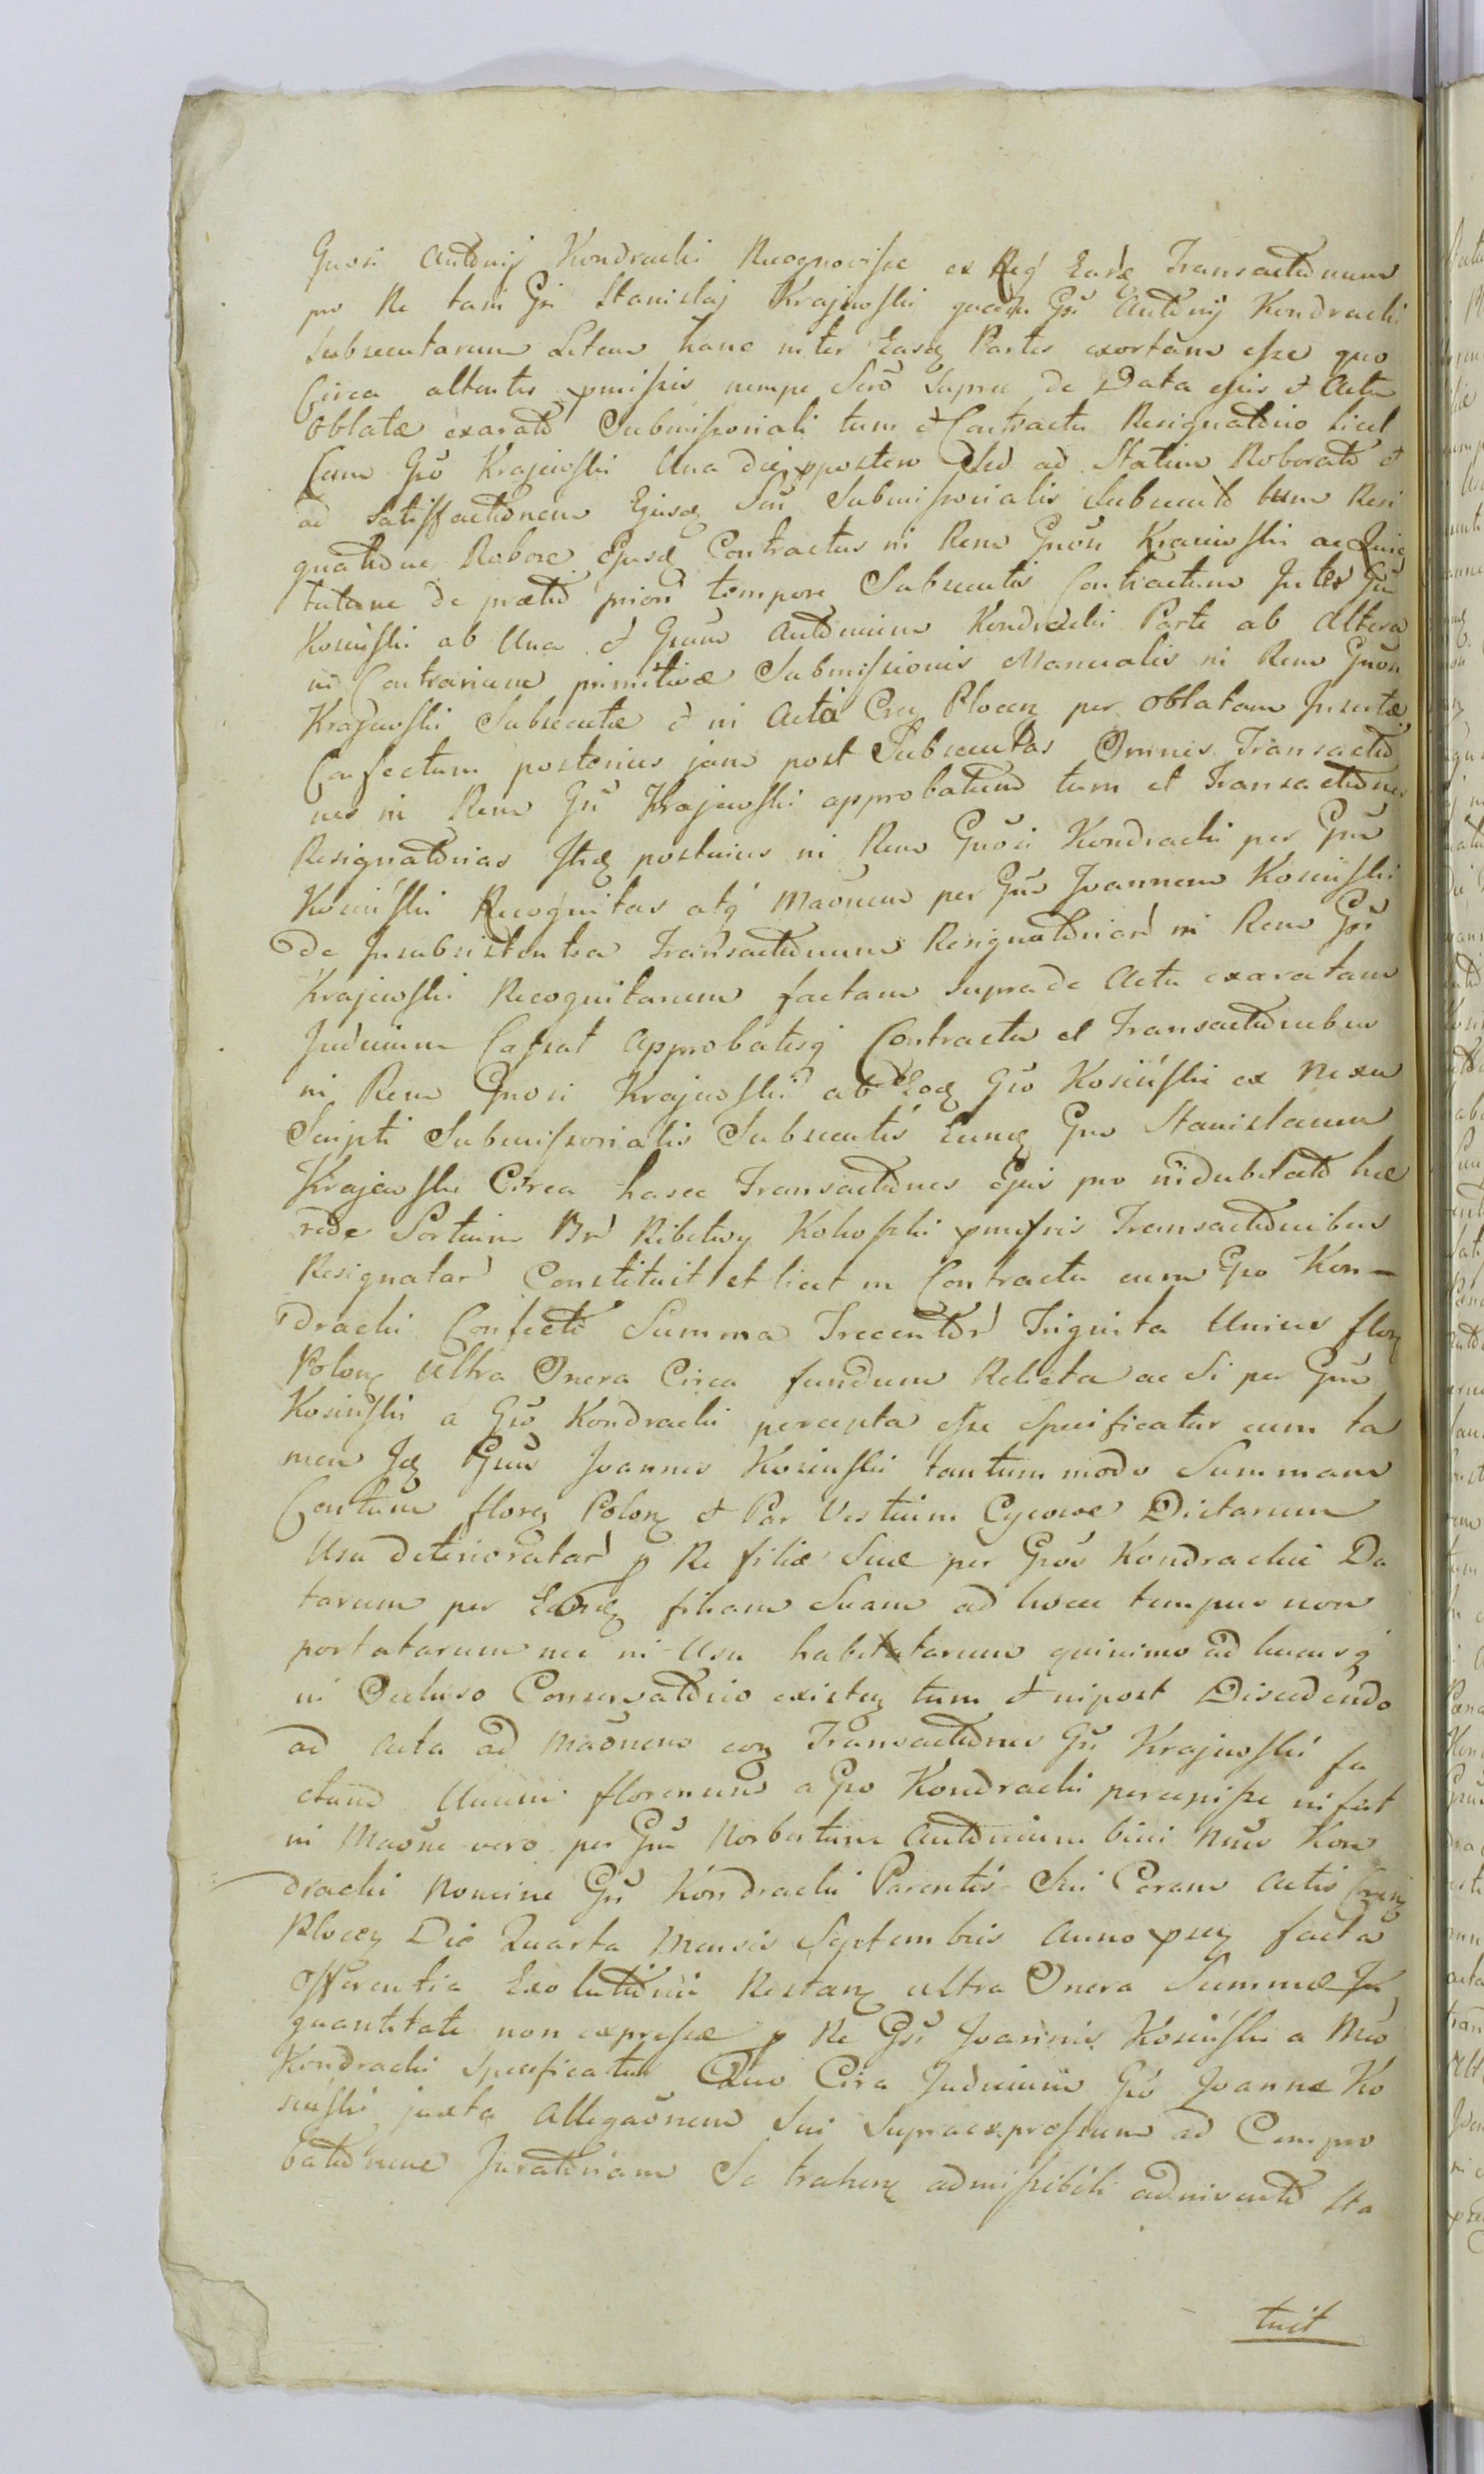 Gnosi Antonij Kondracki Recognovisse ex Reg Earz Transactionum
pro Re tam Gsi Stanislaj Krajewski quam Gsi Antonij Kondracki
Subsecutarum Litem hanc inter Easz Partes exortam esse quo
Circa attentis pmissis nempe Scrō Supra de Data ejus et Actu
Oblatæ exarato Submissoriali tum et Contractu Resignatorio licet
Cum Gso Krajewski Una die postem Sed ad Statim Roborato et
ad Satisfactionem Ejusz Scri Submissorialis Subsecuto tum Resi
gnatione Robore Ejusz Contractus in Rem Gnosi Kraiewski ac Quie
tatione de prætio priori tempore Subsecutis Contractum Inter Gsu
Kosinski ab Una et Gsum Antonium Kondracki Parte ab Altera
in Contrarium primitivæ Submissionis Manualis in Rem Gnosi
Krajewski Subsecutæ et in Acta Cren Plocen per Oblatam Insertæ
Confectum posterius jam post Subsecutas Omnis Transactio
nes in Rem Gsi Krajewski approbatum tum et Transactiones
Resignatorias Itz posterius in Rem Gnosi Kondracki per Gsu
Kosinski Recognitas atq Maōnem per Gsu Joannem Kosinski
De Insubsistentia Transactionum Resignatoriar in Rem Gsi
Krajewski Recognitarum factam supra de Actu exaratam
Judicium Cassat Approbatisq Contractu et Transactionibus
in Rem Gnosi Krajewski ab Eoz Gso Kosinski ex Nexu
Scripti Submissorialis Subsecutis Eumz Gsu Stanislaum
Krajewski Circa hasce Transactiones Ejus pro indubitato hæ
rede Sortium Br Ribitwy Koło pmissis Transactionibus
Resignatar Constituit et licet in Contractu cum Gso Kon-
dracki Confecto Summa Trecentor Triginta Unius flor
Polon Ultra Onera Circa fundum Relicta ac Si per Gsu
Kosinski a Gso Kondracki percepta esse Specificatur cum ta
men Iz Gsus Joannes Kosinski tantum modo Summam
Centum floren Polon et Par Vestium Cycowe Dictarum
Usu deterioratar p Re filiæ Suæ per Gsos Kondrackie Da
tarum per Eandz filiam Suam ad hocce tempus non
portatarum nec in Usu habitatarum quinimo ad hucusq
in Occluso Conservatorio existen tum et in post Discedendo
ad Acta ad Maōnem eoz Transactiones Gsi Krajewski fa
ctum Unum florenum a Gso Kondracki percepisse infert
in Maōne vero per Gsu Norbertum Antonium bini Nūs Kon
dracki Nomine Gsi Kondracki Parentis Sui Coram Actis Cren
Plocen Die Quarta Mensis Septembris Anno psen facta
Offerentia Exolutionis Restan ultra Onera Summæ In
quantitate non expressæ p Re Gsi Joannis Kosinski a Mco
Kondracki Specificatur Quo Circa Judicium Gso Joanne Ko
sinski juxta Allegaōnem Sui Supraexpressum ad Compro
bationem Juratoriam Se trahen admissibili adinvento Sta
tuit